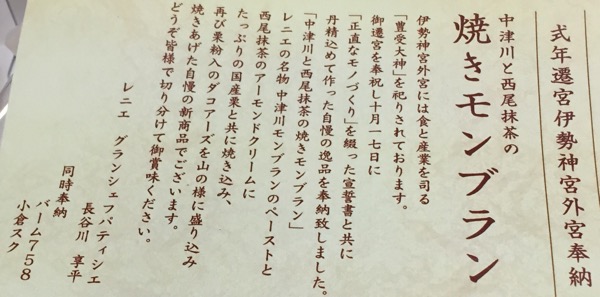 弐年遷宮伊勢神宮外宮奉納
中津川と西尾抹茶の
焼きモンブラン
伊勢神宮外宮には食と産業を司る
「豊受大神」を祀りされております。
御遷宮を奉祝し十月一七日に
「正直なモノづくり」を綴った宣誓書と共に
丹精込めて作った自慢の逸品を奉納致しました。
「中津川と西尾抹茶の焼きモンブラン」
レニエの名物 中津川モンブランのペーストと
西尾抹茶のアーモンドクリームに
たっぷりの国産栗と共に焼き込み、
再び栗粉入のダコアーズを山の様に盛り込み
焼きあげた自慢の新商品でございます。
どうぞ皆様で切り分けて御賞味ください。
レニエ グランシェフパティシエ
長谷川 享平
同時奉納
バーム758
小倉スク